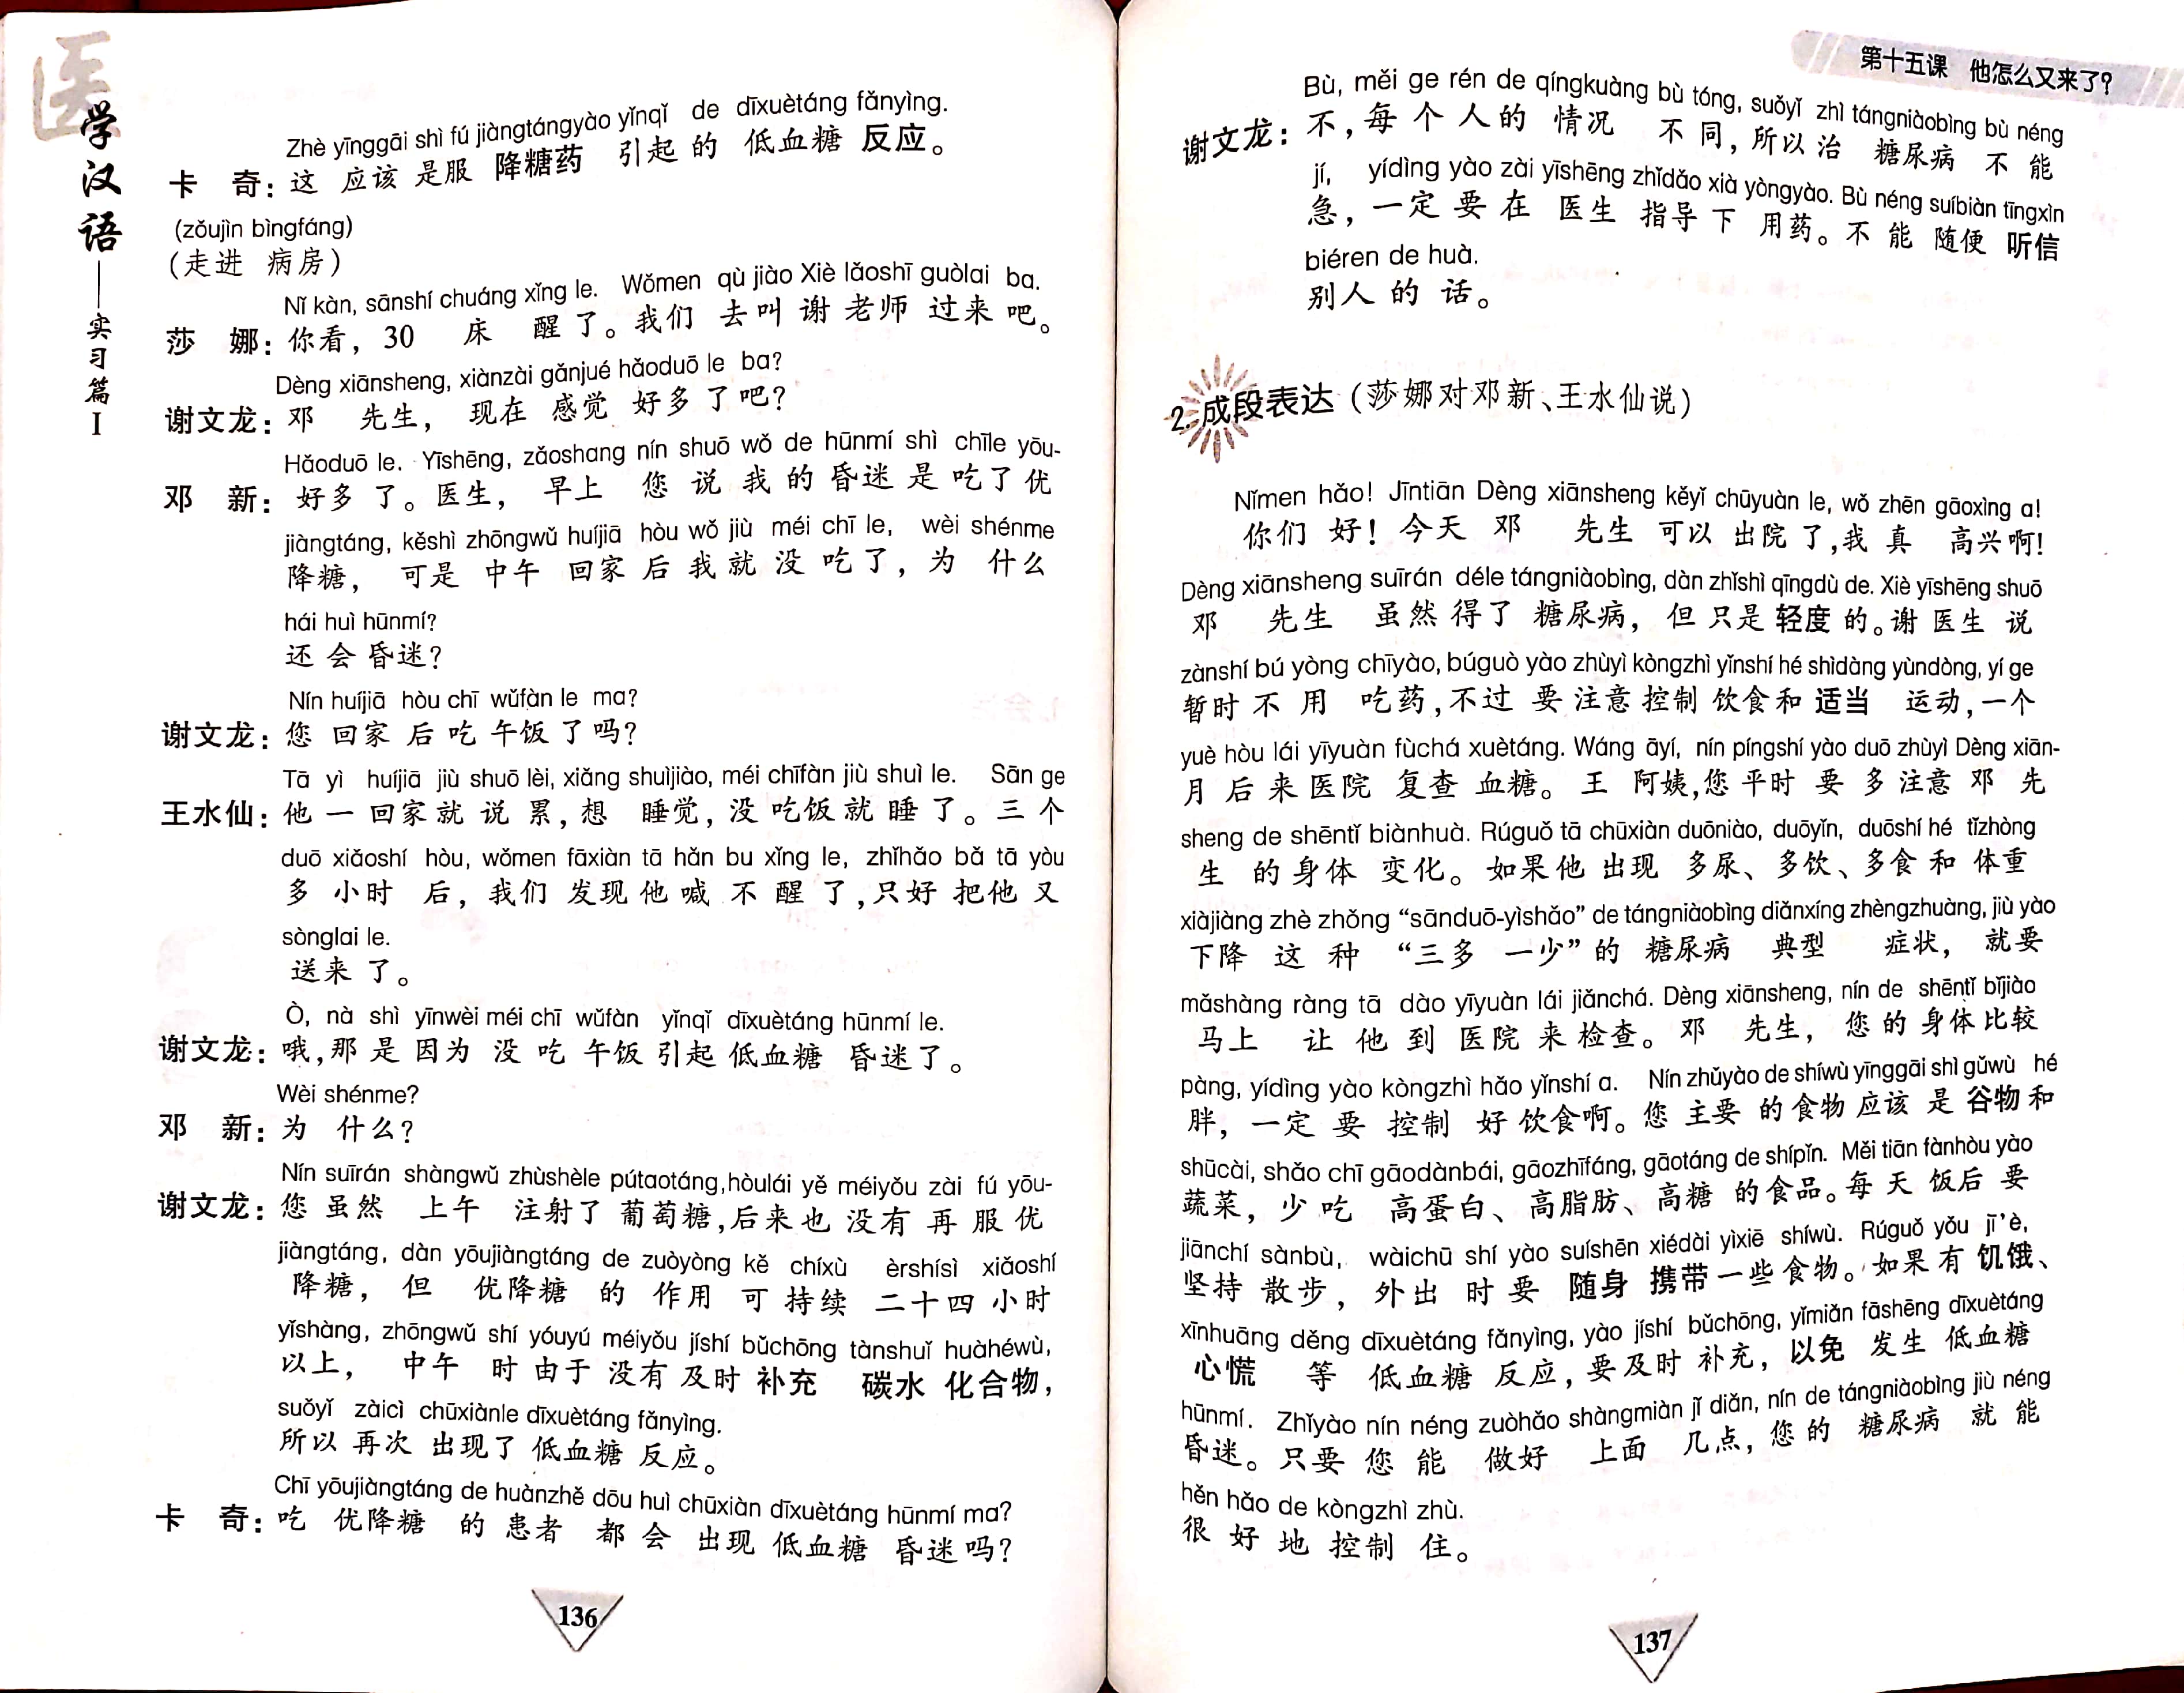 医
学汉语——实习篇 I
Zhè yīnggāi shì fú jiàngtángyào yǐnqǐ de dīxuètáng fǎnyìng.
卡 奇：这 应该 是服 降糖药 引起 的 低血糖 反应。
(zǒujìn bìngfáng)
(走进 病房)
Nǐ kàn, sānshí chuáng xǐng le. Wǒmen qù jiào Xiè lǎoshī guòlai ba.
莎 娜：你看，30 床 醒 了。我们 去叫 谢 老师 过来 吧。
Dèng xiānsheng, xiànzài gǎnjué hǎoduō le ba?
谢文龙：邓 先生， 现在 感觉 好多 了吧？
Hǎoduō le. Yīshēng, zǎoshang nín shuō wǒ de hūnmí shì chīle yōu-
邓 新：好多 了。医生， 早上 您 说 我 的 昏迷 是 吃了 优
jiàngtáng, kěshì zhōngwǔ huíjiā hòu wǒ jiù méi chī le, wèi shénme
降糖， 可是 中午 回家 后 我 就 没 吃了，为 什么
hái huì hūnmí?
还 会 昏迷？
Nín huíjiā hòu chī wǔfàn le ma?
谢文龙：您 回家 后 吃 午饭 了 吗？
Tā yì huíjiā jiù shuō lèi, xiǎng shuìjiào, méi chīfàn jiù shuì le. Sān ge
王水仙：他 一 回家 就 说 累，想 睡觉，没 吃饭 就 睡 了。三 个
duō xiǎoshí hòu, wǒmen fāxiàn tā hǎn bu xǐng le, zhǐhǎo bǎ tā yòu
多 小时 后，我们 发现 他 喊 不 醒 了，只好 把 他 又
sònglai le.
送来 了。
Ò, nà shì yīnwèi méi chī wǔfàn yǐnqǐ dīxuètáng hūnmí le.
谢文龙：哦，那 是 因为 没 吃 午饭 引起 低血糖 昏迷 了。
Wèi shénme?
邓 新：为 什么？
Nín suīrán shàngwǔ zhùshèle pútaotáng, hòulái yě méiyǒu zài fú yōu-
谢文龙：您 虽然 上午 注射了 葡萄糖，后来 也 没有 再 服 优
jiàngtáng, dàn yōujiàngtáng de zuòyòng kě chíxù èrshísì xiǎoshí
降糖， 但 优降糖 的 作用 可 持续 二十四 小时
yǐshàng, zhōngwǔ shí yóuyú méiyǒu jíshí bǔchōng tànshuǐ huàhéwù,
以上， 中午 时 由于 没有 及时 补充 碳水 化合物，
suǒyǐ zàicì chūxiànle dīxuètáng fǎnyìng.
所以 再次 出现了 低血糖 反应。
Chī yōujiàngtáng de huànzhě dōu huì chūxiàn dīxuètáng hūnmí ma?
卡 奇：吃 优降糖 的 患者 都 会 出现 低血糖 昏迷 吗？
136
第十五课 他怎么又来了？
Bù, měi ge rén de qíngkuàng bù tóng, suǒyǐ zhì tángniàobìng bù néng
谢文龙：不，每 个 人 的 情况 不 同，所以 治 糖尿病 不 能
jí, yídìng yào zài yīshēng zhǐdǎo xià yòngyào. Bù néng suíbiàn tīngxìn
急，一定 要 在 医生 指导 下 用药。不 能 随便 听信
biéren de huà.
别人 的 话。
2. 成段表达（莎娜对邓新、王水仙说）
Nǐmen hǎo! Jīntiān Dèng xiānsheng kěyǐ chūyuàn le, wǒ zhēn gāoxìng a!
你们 好！今天 邓 先生 可以 出院 了，我 真 高兴啊！
Dèng xiānsheng suīrán déle tángniàobìng, dàn zhǐshì qīngdù de. Xiè yīshēng shuō
邓 先生 虽然 得了 糖尿病， 但 只是 轻度 的。谢 医生 说
zànshí bú yòng chīyào, búguò yào zhùyì kòngzhì yǐnshí hé shìdàng yùndòng, yí ge
暂时 不 用 吃药，不过 要 注意 控制 饮食 和 适当 运动，一个
yuè hòu lái yīyuàn fùchá xuètáng. Wáng āyí, nín píngshí yào duō zhùyì Dèng xiān-
月 后 来 医院 复查 血糖。 王 阿姨，您 平时 要 多 注意 邓 先
sheng de shēntǐ biànhuà. Rúguǒ tā chūxiàn duōniào, duōyǐn, duōshí hé tǐzhòng
生 的 身体 变化。如果 他 出现 多尿、多饮、多食 和 体重
xiàjiàng zhè zhǒng “sānduō-yìshǎo” de tángniàobìng diǎnxíng zhèngzhuàng, jiù yào
下降 这 种 “三多 一少”的 糖尿病 典型 症状， 就要
mǎshàng ràng tā dào yīyuàn lái jiǎnchá. Dèng xiānsheng, nín de shēntǐ bǐjiào
马上 让 他 到 医院 来 检查。邓 先生， 您 的 身体 比较
pàng, yídìng yào kòngzhì hǎo yǐnshí a. Nín zhǔyào de shíwù yīnggāi shì gǔwù hé
胖，一定 要 控制 好 饮食啊。您 主要 的 食物 应该 是 谷物 和
shūcài, shǎo chī gāodànbái, gāozhīfáng, gāotáng de shípǐn. Měi tiān fànhòu yào
蔬菜， 少 吃 高蛋白、高脂肪、高糖 的 食品。每 天 饭后 要
jiānchí sànbù, wàichū shí yào suíshēn xiédài yìxiē shíwù. Rúguǒ yǒu jī'è,
坚持 散步， 外出 时 要 随身 携带 一些 食物。如果 有 饥饿、
xīnhuāng děng dīxuètáng fǎnyìng, yào jíshí bǔchōng, yǐmiǎn fāshēng dīxuètáng
心慌 等 低血糖 反应，要 及时 补充，以免 发生 低血糖
hūnmí. Zhǐyào nín néng zuòhǎo shàngmiàn jǐ diǎn, nín de tángniàobìng jiù néng
昏迷。只要 您 能 做好 上面 几点，您 的 糖尿病 就 能
hěn hǎo de kòngzhì zhù.
很 好 地 控制 住。
137